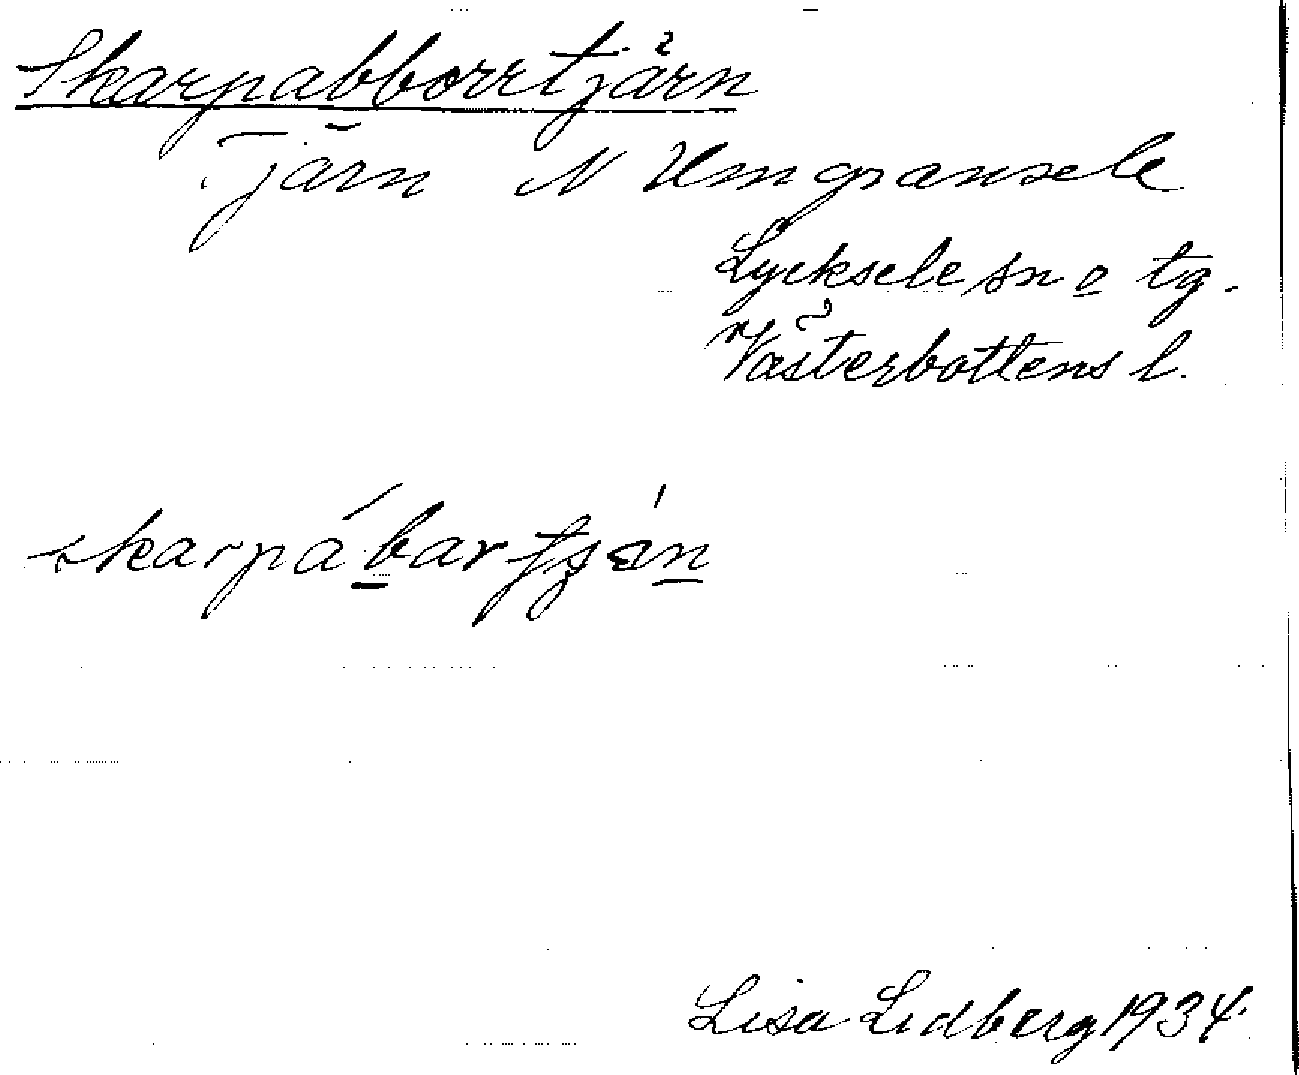 Skarpabborrtjärn
Tjärn N Umgransele
Lycksele sn o tg.
Västerbottens l.
Lisa Lidberg 1934.